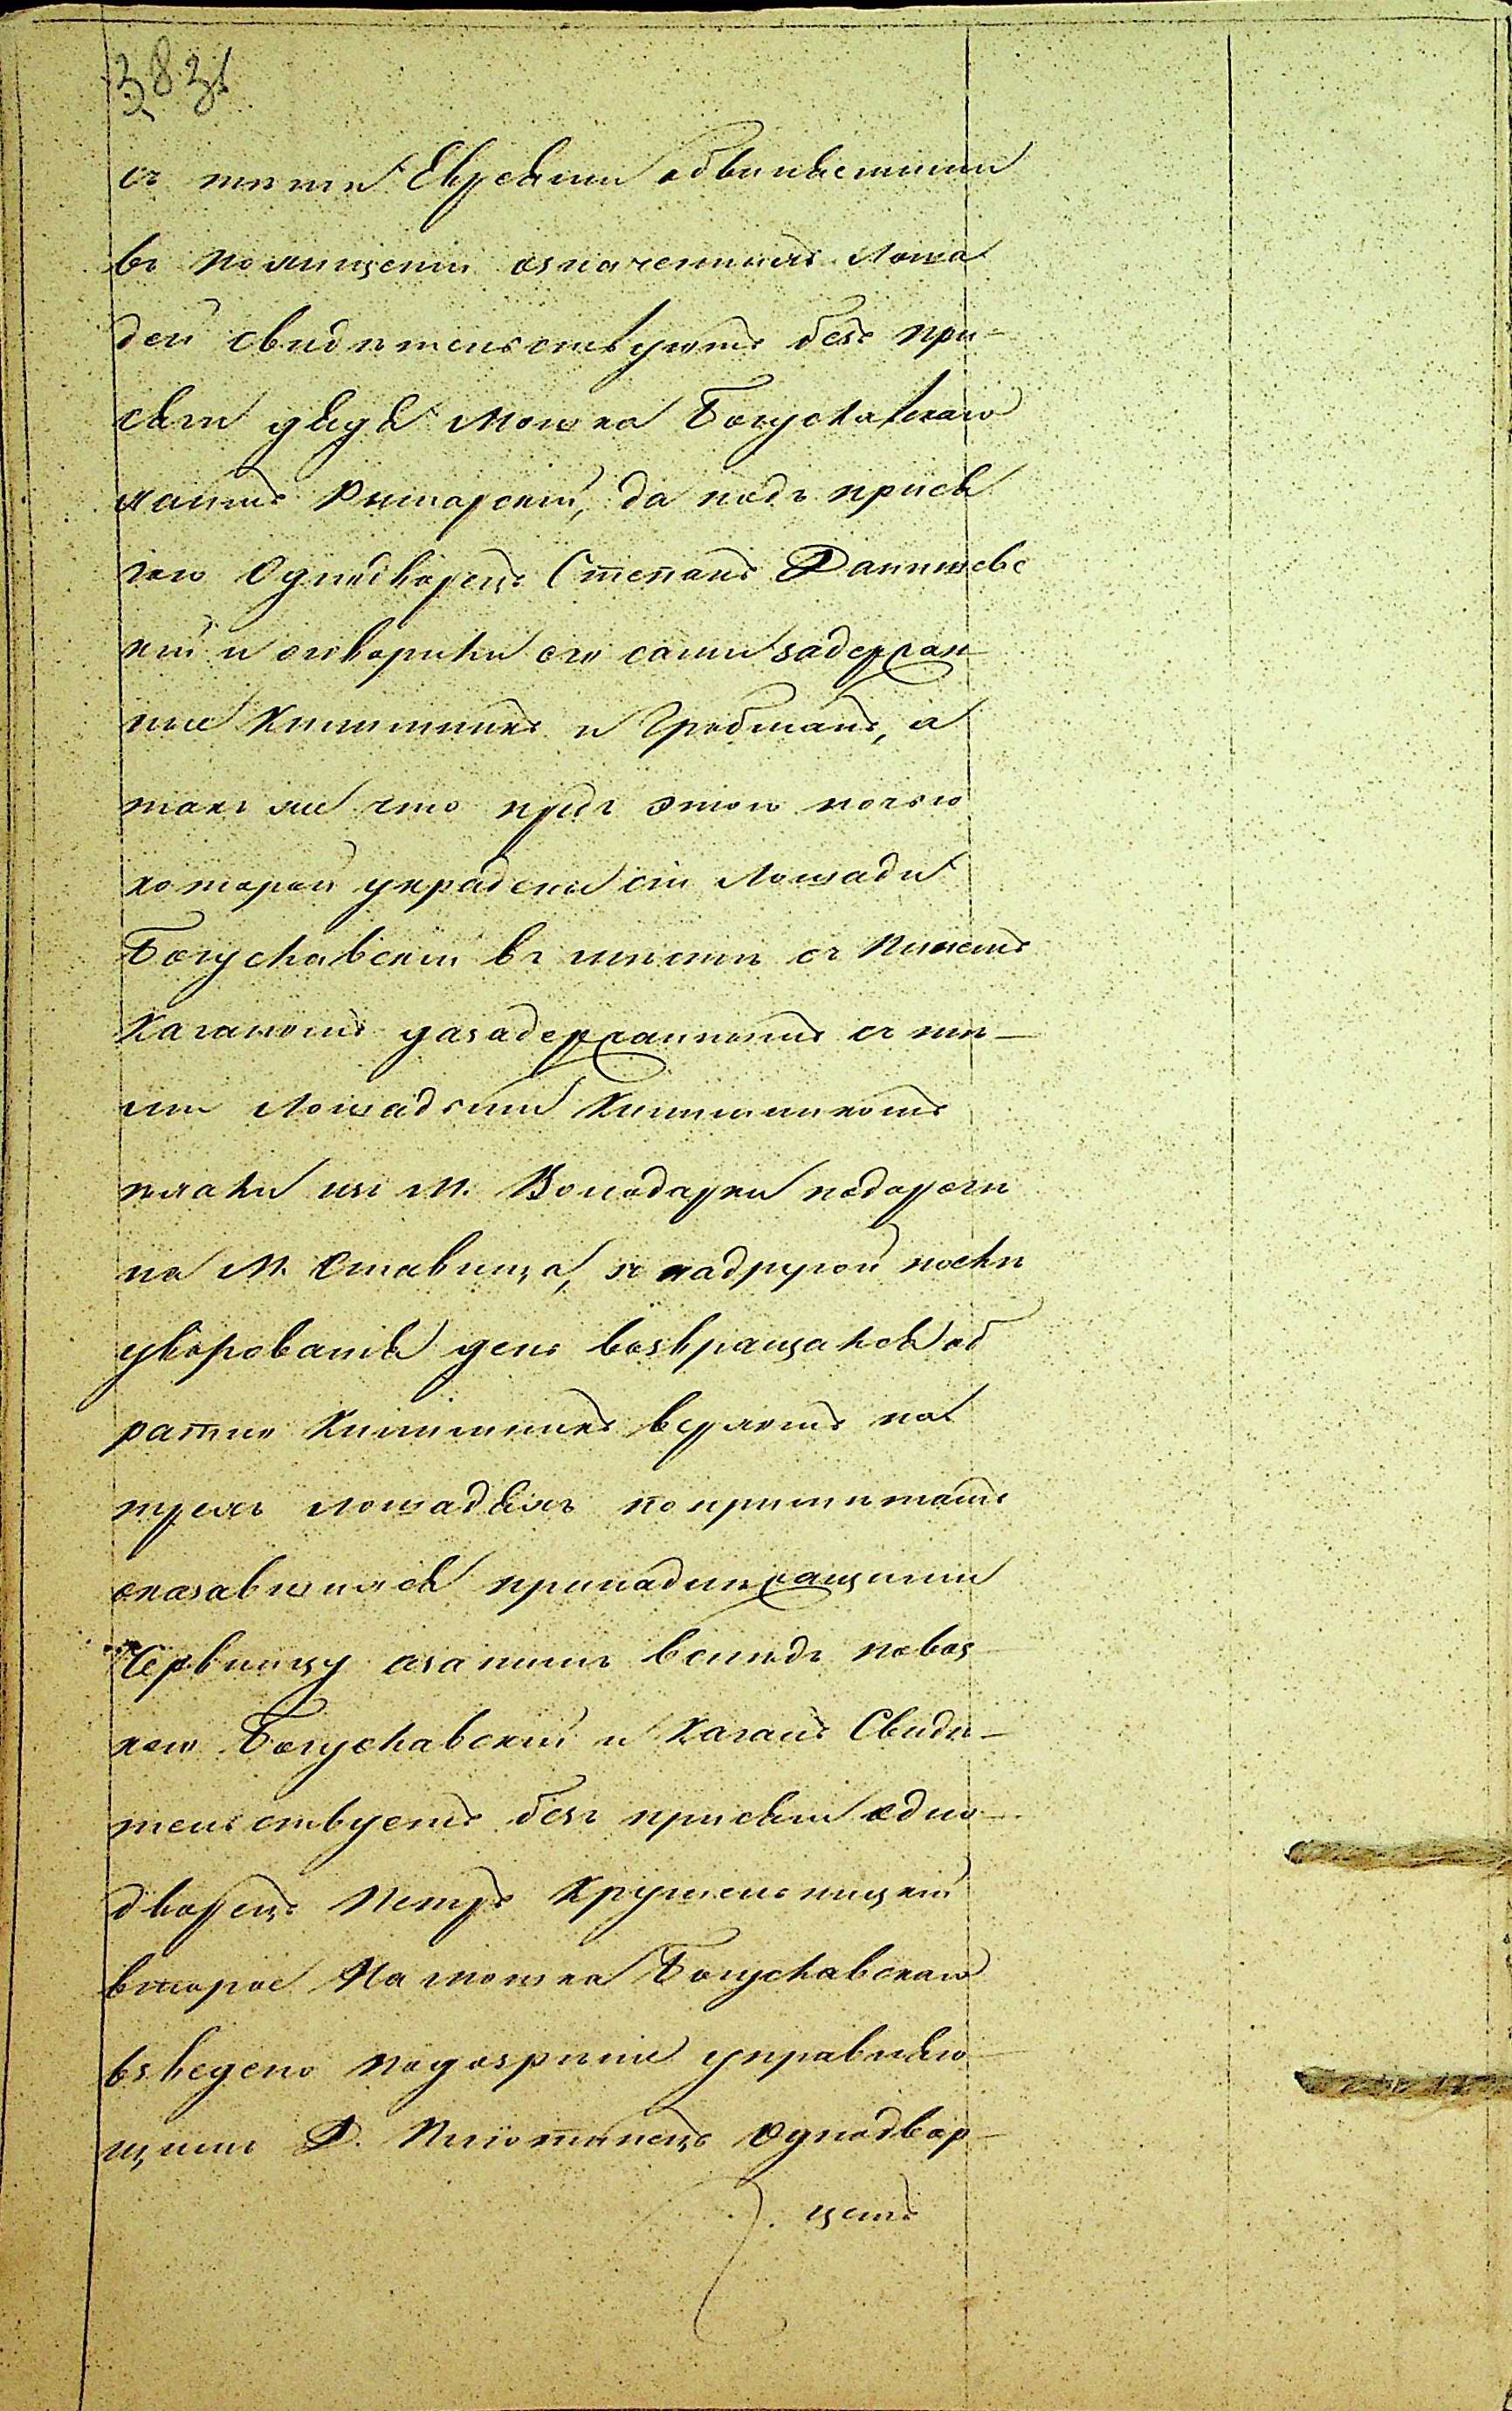 383
съ тѣми Евреями обвиняемыми
въ похищеніи означенныхъ Лоша
дей свидѣтельствуютъ безъ при-
сяги дядя Мошка Богуславскаго
Рымарскій, да подъ прися
гою Однодворецъ Степанъ Данишевс
кій и оговорили его сами задержан
ные Кишинникъ и Гробманъ, а
такъ же что предъ этою ночью
которой украдены сіи Лошади
Богуславскій въ мѣстѣ съ
Каганомъ да задержаннымъ съ тѣ-
ми Лошадьми Кишинникомъ
ѣхали изъ М. Володарки по дорогѣ
на М. Ставища, а на другой послѣ
уворованія день возвращался об
ратно Кишинникъ верхомъ на
трехъ лошадяхъ по примѣтамъ
оказавшихся принадлежащими
Червинску а за нимъ вслѣдъ повоз
кою Богуславскій и Каганъ Свидѣ-
тельствуетъ безъ присяги одно
дворецъ Петръ Крушельницкій
второе На Мошка Богуславскаго
взведено подозрѣніе управляю
щимъ Д. Однодвор-
цемъ